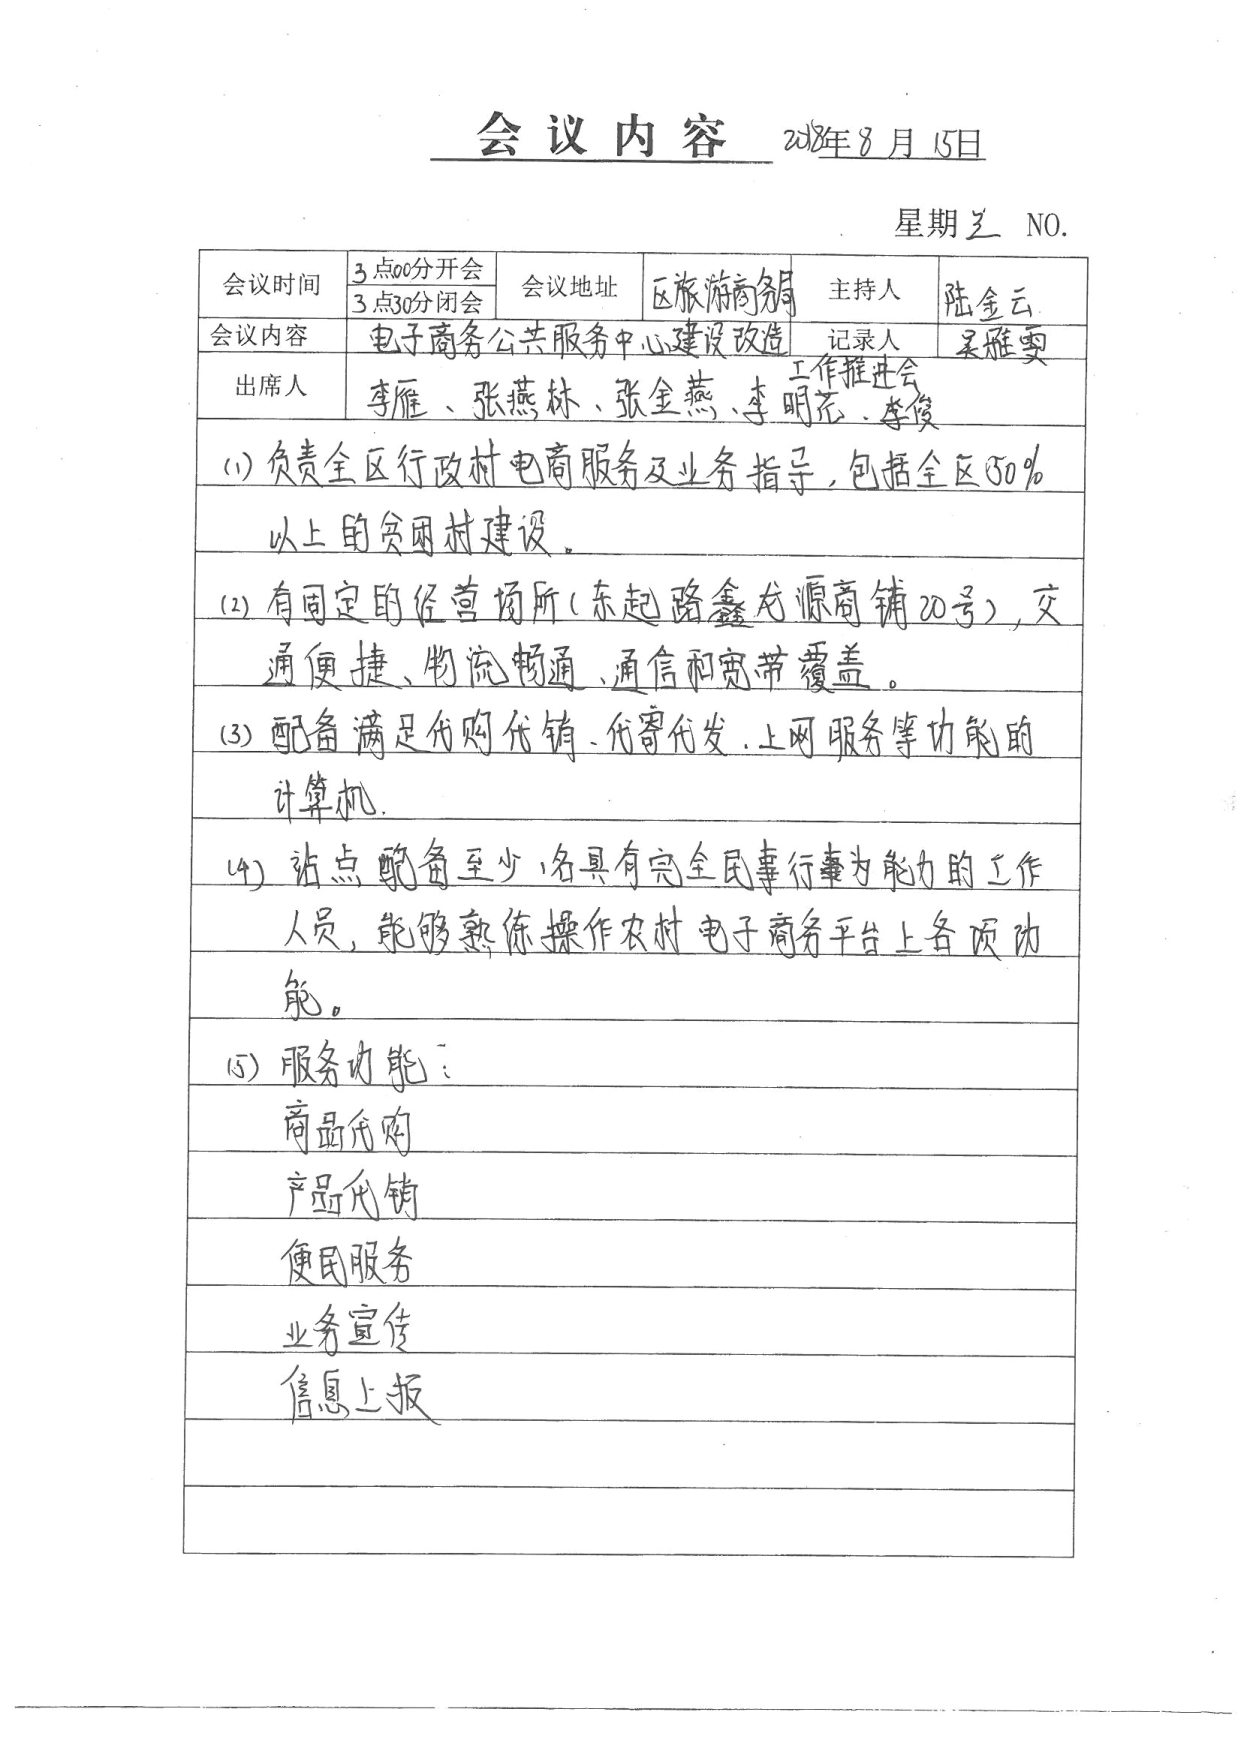 会议内容 2018年8月15日
星期三 NO.
会议时间 3点00分开会 会议地址 区旅游商务局 主持人 陆金云
3点30分闭会
会议内容 电子商务公共服务中心建设改造 记录人 吴雅雯
工作推进会
出席人 李雁、张燕林、张金燕、李明花、李俊
(1) 负责全区行政村电商服务及业务指导，包括全区50%
以上的贫困村建设。
(2) 有固定的经营场所(东起路鑫龙源商铺20号)，交
通便捷、物流畅通、通信和宽带覆盖。
(3) 配备满足代购代销、代寄代发、上网服务等功能的
计算机.
(4) 站点配备至少1名具有完全民事行为能力的工作
人员，能够熟练操作农村电子商务平台上各项功
能。
(5) 服务功能：
商品代购
产品代销
便民服务
业务宣传
信息上报